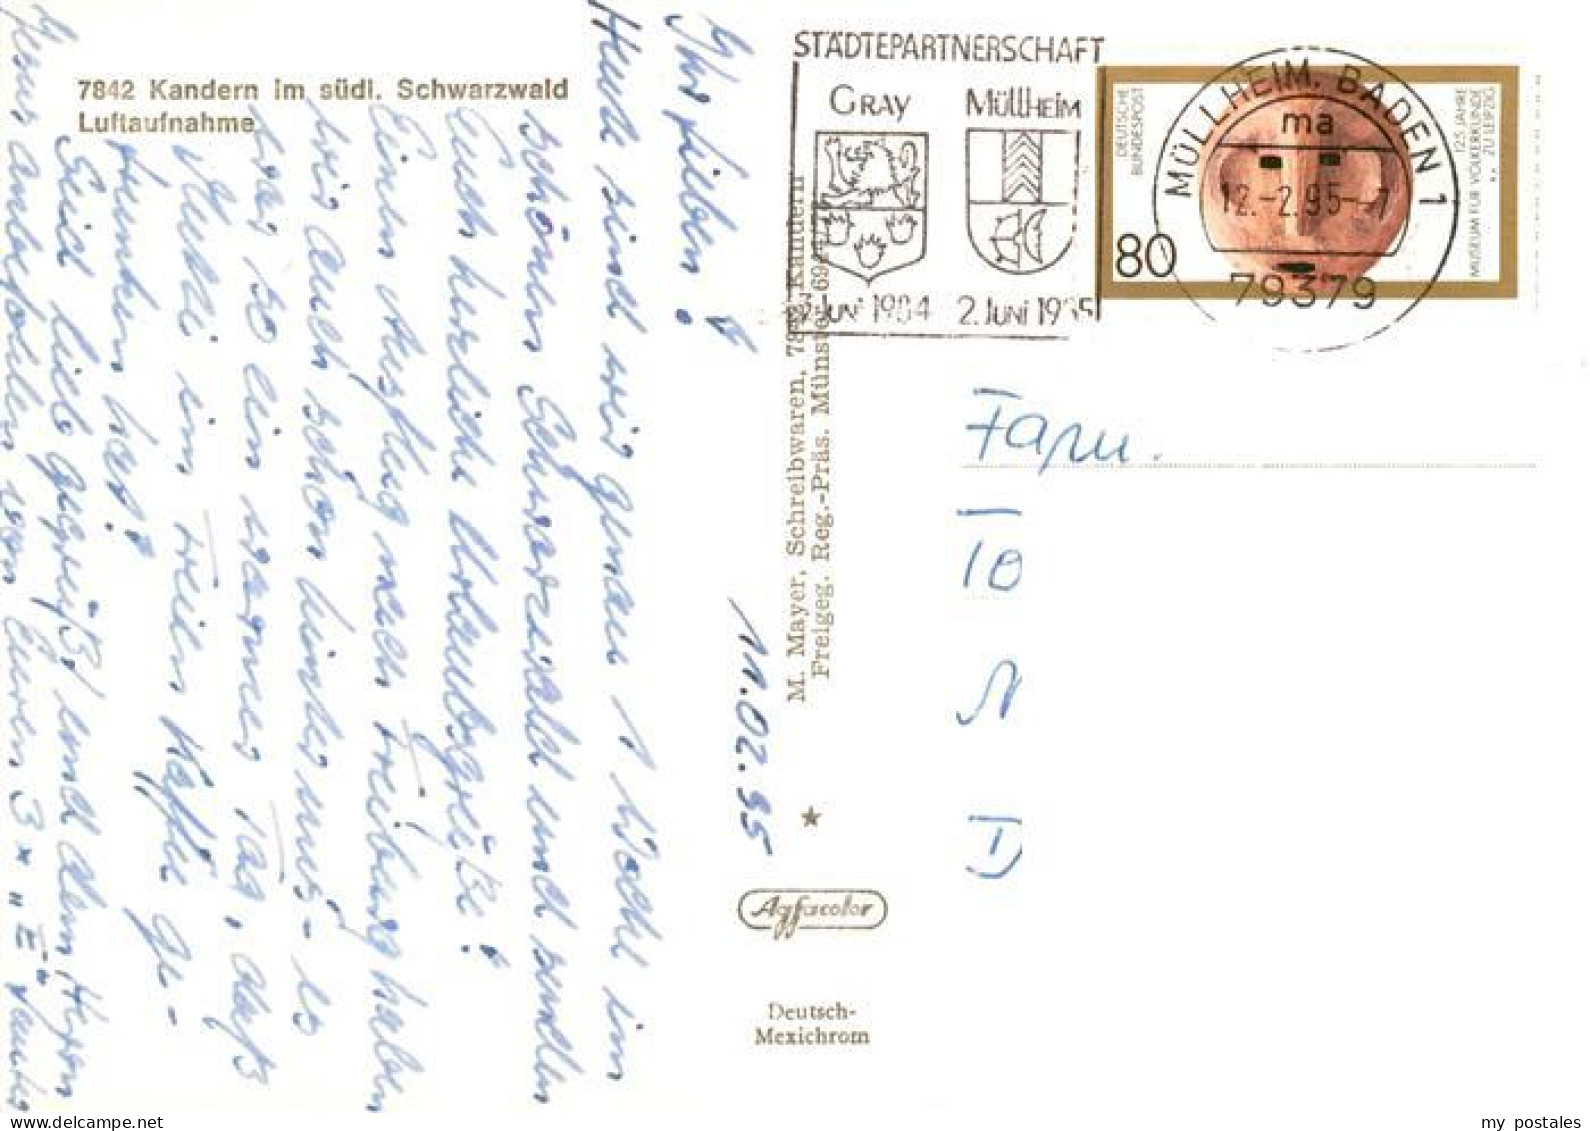 7842 Kandern im südl. Schwarzwald
Luftaufnahme
Ihr Lieben!
Heute sind wir genau 1 Woche im
schönen Schwarzwald und senden
Euch herzliche Urlaubsgrüße!
Einen Ausflug nach Freiburg haben
wir auch schon hinter uns - es
war so ein warmer Tag, daß
Mukki im Freien Kaffee ge-
trunken hat!
Seid lieb gegrüßt und dem Herrn
Jesus anbefohlen von Euren 3 x "E"
11.02.95
M. Mayer, Schreibwaren, 7842 Kandern
Freigeg. Reg.-Präs. Münster
Agfacolor
Deutsch-
Mexichrom
STÄDTEPARTNERSCHAFT
GRAY MÜLLHEIM
Juni 1984 2. Juni 1985
DEUTSCHE
BUNDESPOST
80
125 JAHRE
MUSEUM FÜR VÖLKERKUNDE
ZU LEIPZIG
MÜLLHEIM, BADEN 1
ma
12.-2.95-
79379
Fam.
my postales